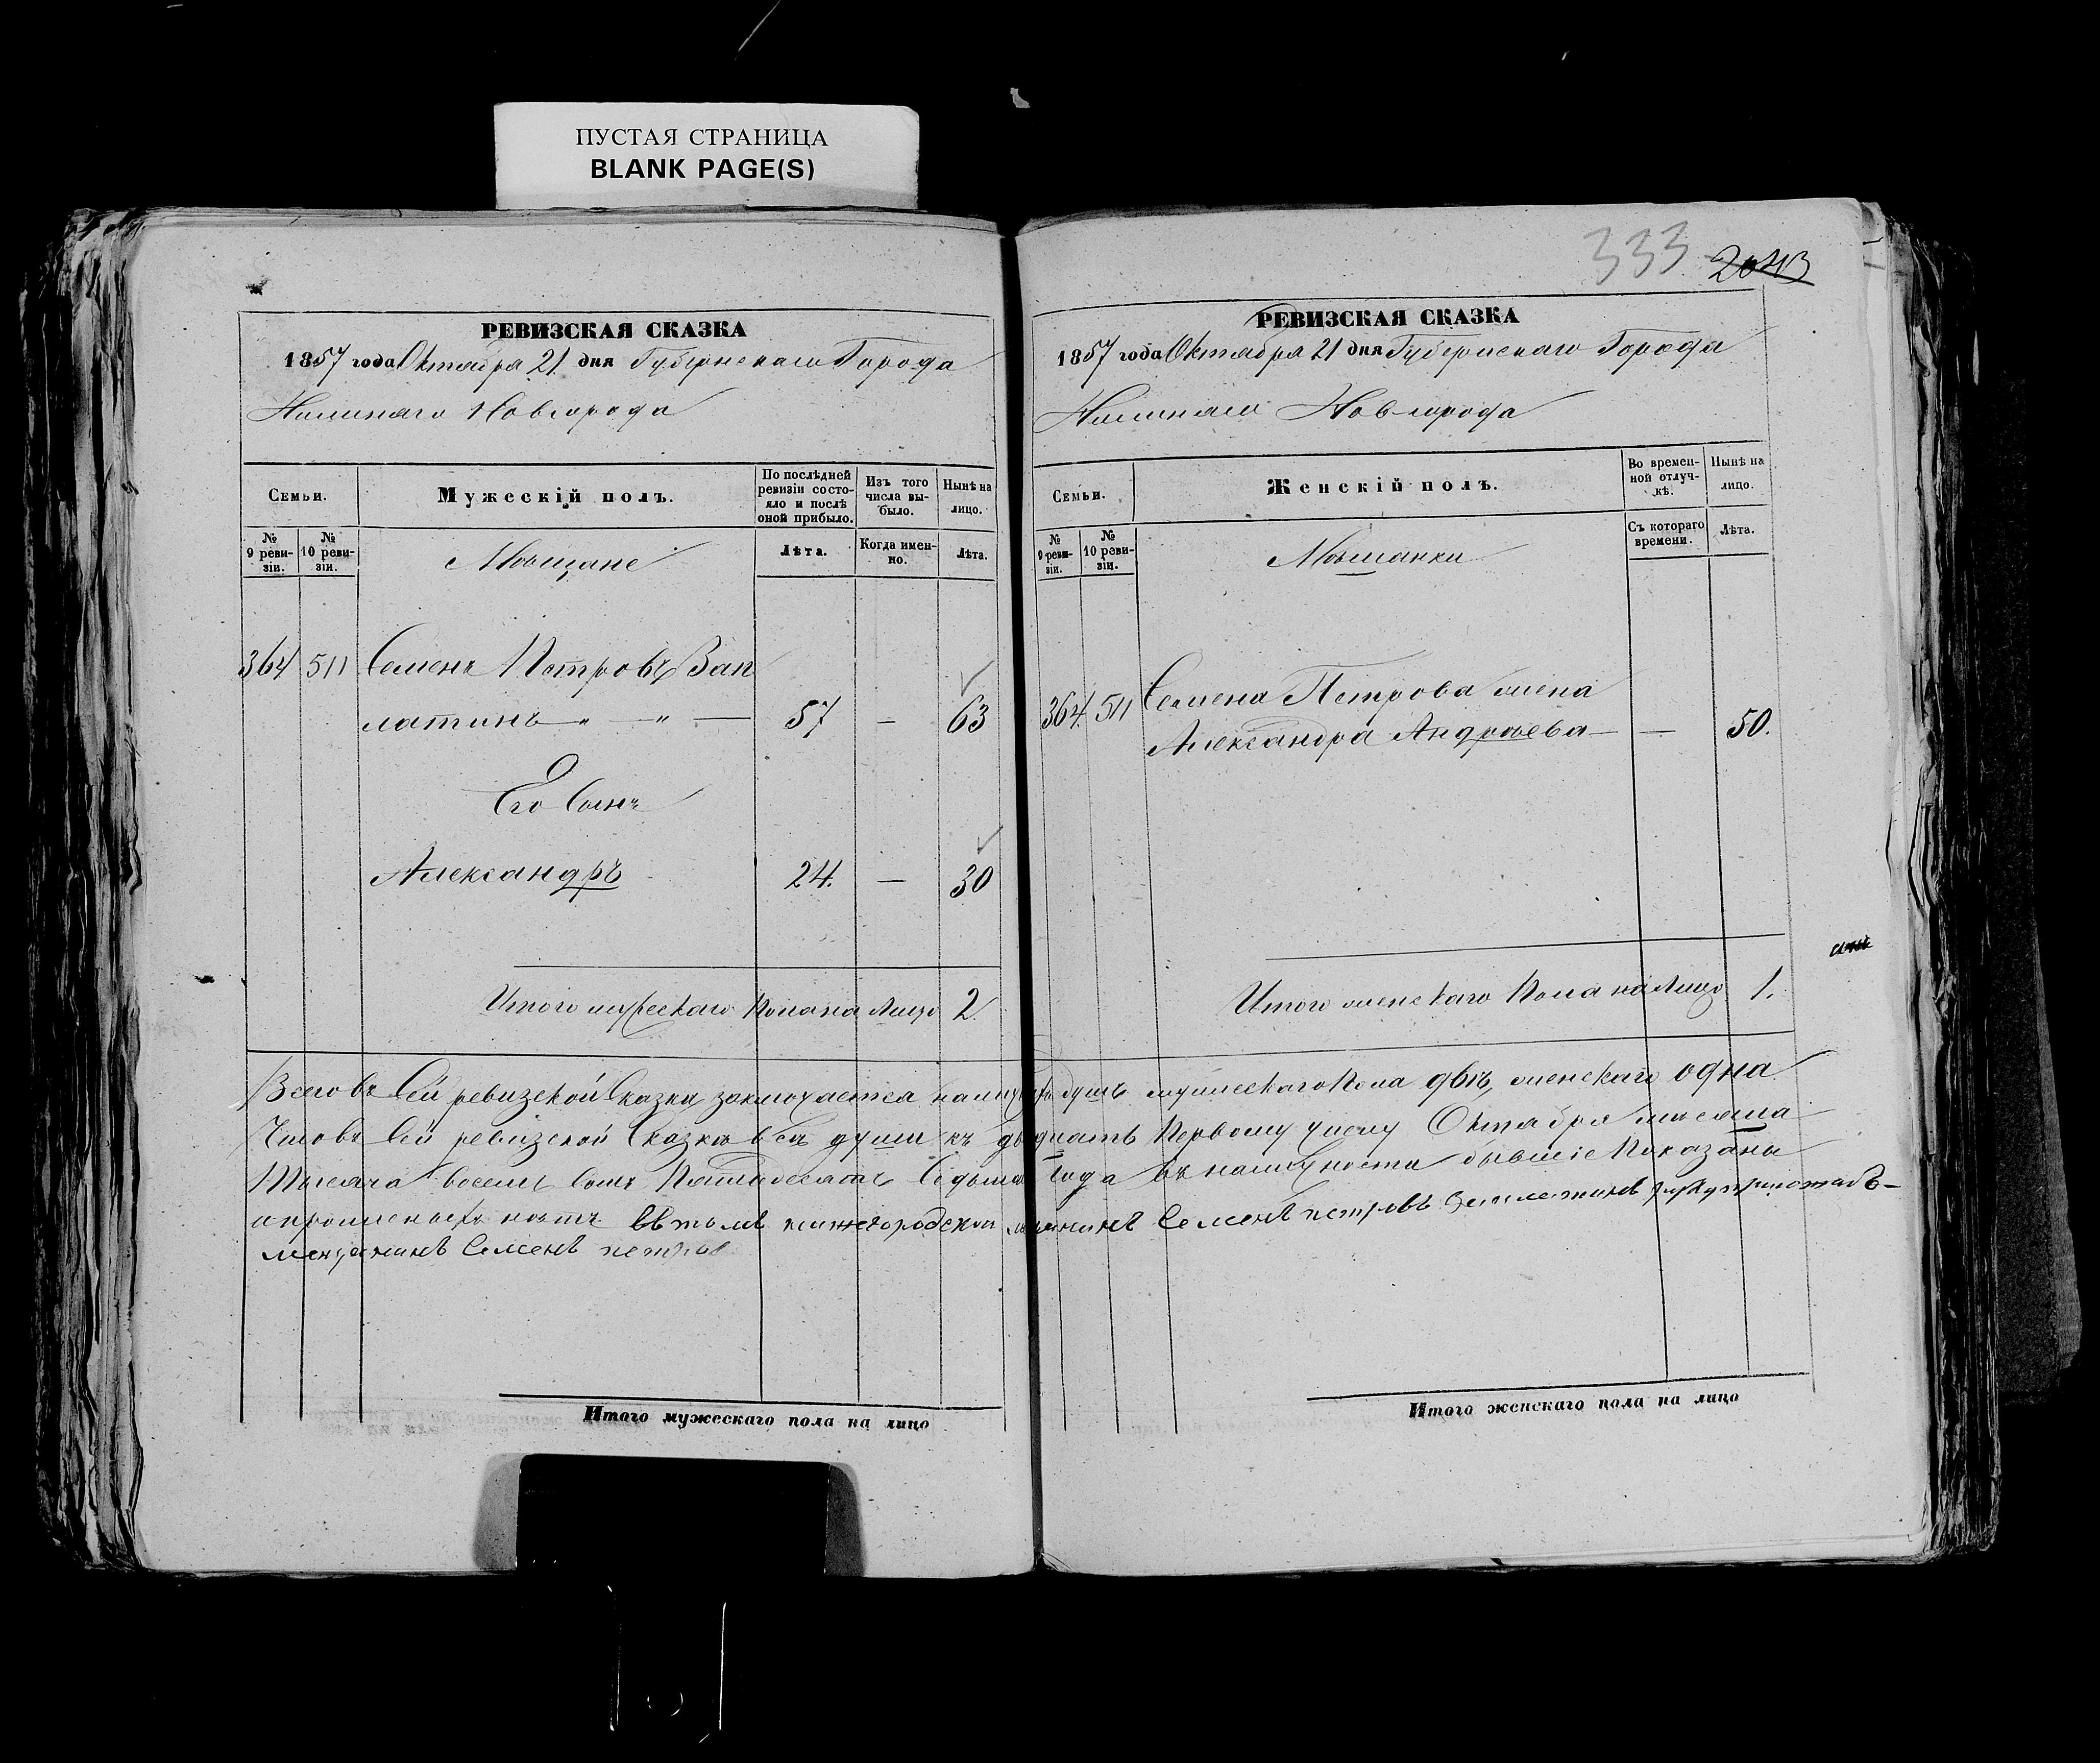 ПУСТАЯ СТРАНИЦА
BLANK PAGE(S)
РЕВИЗСКАЯ СКАЗКА
1857 года Октября 21 дня Губернскаго Города
Нижняго Новгорода
Семьи.
Мужескій полъ.
По послѣдней ревизіи состояло и послѣ оной прибыло.
Изъ того числа выбыло.
Нынѣ на лицо.
№ 9 ревизіи.
№ 10 ревизіи.
Мѣщане
Лѣта.
Когда именно.
Лѣта.
364 511 Семенъ Петровъ Зап
латинъ — " — " — 57 — 63
Его Сынъ
Александръ 24. — 30
Итого мужескаго пола на лицо 2
333 2043
РЕВИЗСКАЯ СКАЗКА
1857 года Октября 21 дня Губернскаго Города
Нижняго Новгорода
Семьи.
Женскій полъ.
Во временной отлучкѣ.
Нынѣ на лицо.
№ 9 ревизіи.
№ 10 ревизіи.
Мѣщанки
Съ котораго времени.
Лѣта.
364 511 Семена Петрова жена
Александра Андреева — — 50.
Итого женскаго пола на лицо 1.
Всего въ сей ревизской Сказки заключается душъ мужескаго пола двѣ, женскаго одна
Что въ сей ревизской Сказкѣ всѣ души къ двадцать первому числу Октября мѣсяца
Тысяча восемь сотъ пятидесятъ седьмаго года въ наличности бывшіе показаны
и прописныхъ нѣтъ въ томъ нижегородской мещининъ Семенъ петровъ
мещининъ Семенъ петров
Итого мужескаго пола на лицо
Итого женскаго пола на лицо